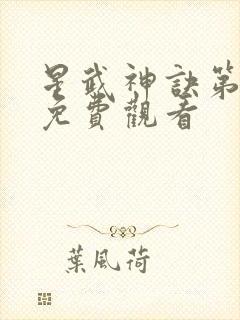 星武神訣第
免費觀看
葉風荷